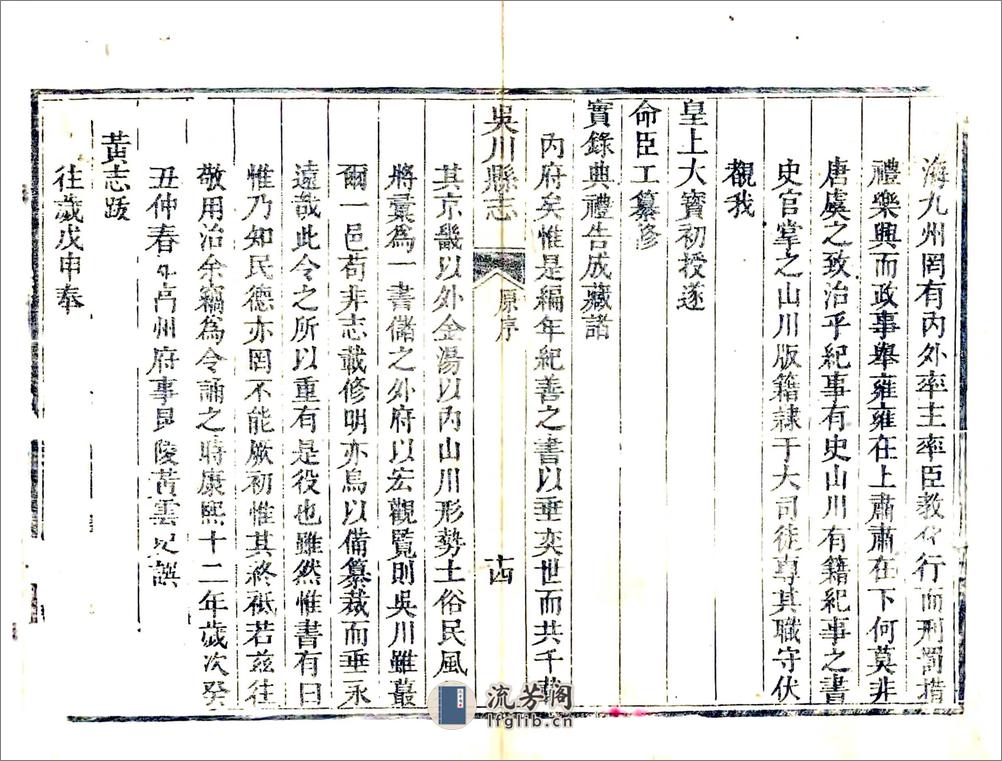 海九州罔有內外率土率臣教化行而刑罰措
禮樂興而政事舉雍雍在上肅肅在下何莫非
唐虞之致治乎紀事有史山川有籍紀事之書
史官掌之山川版籍隷于大司徒專其職守伏
觀我
皇上大寶初授遂
命臣工纂修
實錄典禮告成藏諸
內府矣惟是編年紀善之書以垂奕世而共千載
吳川縣志
原序
十四
其京畿以外金湯以內山川形勢土俗民風
將彙爲一書儲之外府以宏觀覽則吳川雖蕞
爾一邑苟非志載修明亦烏以備纂裁而垂永
遠哉此令之所以重有是役也雖然惟書有曰
惟乃知民德亦罔不能厥初惟其終祗若兹往
敬用治余竊為令誦之時康熙十二年歲次癸
丑仲春 高州府事毘陵黃雲史譔
黃志跋
往歲戊申奉
流芳阁
lfglib.cn